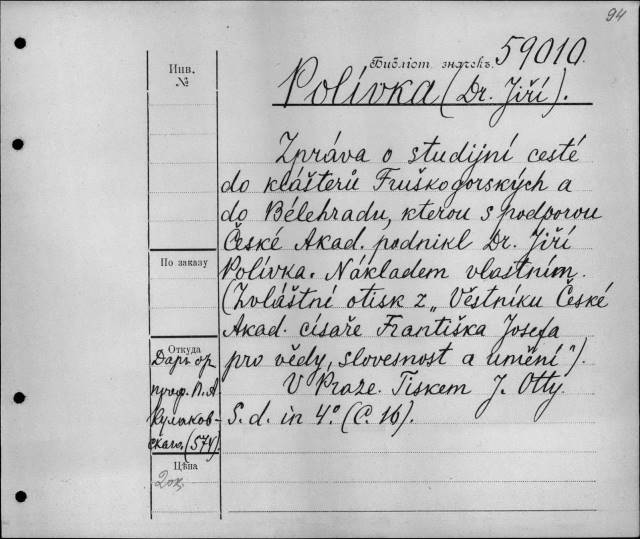 94
Библіот. значекъ. 59010.
Инв.
№
Polívka (Dr. Jiří).
Zpráva o studijní cestě
do klášterů Fruškogorských a
do Bělehradu, kterou s podporou
České Akad. podnikl Dr. Jiří
По заказу
Polívka. Nákladem vlastním.
(Zvláštní otisk z „Věstníku České
Akad. císaře Františka Josefa
Откуда
pro vědy, slovesnost a umění").
Даръ от
V Praze. Tiskem J. Otty.
проф. П. А
S. d. in 4º. (С. 16).
Кулаков-
скаго. (574).
Цѣна